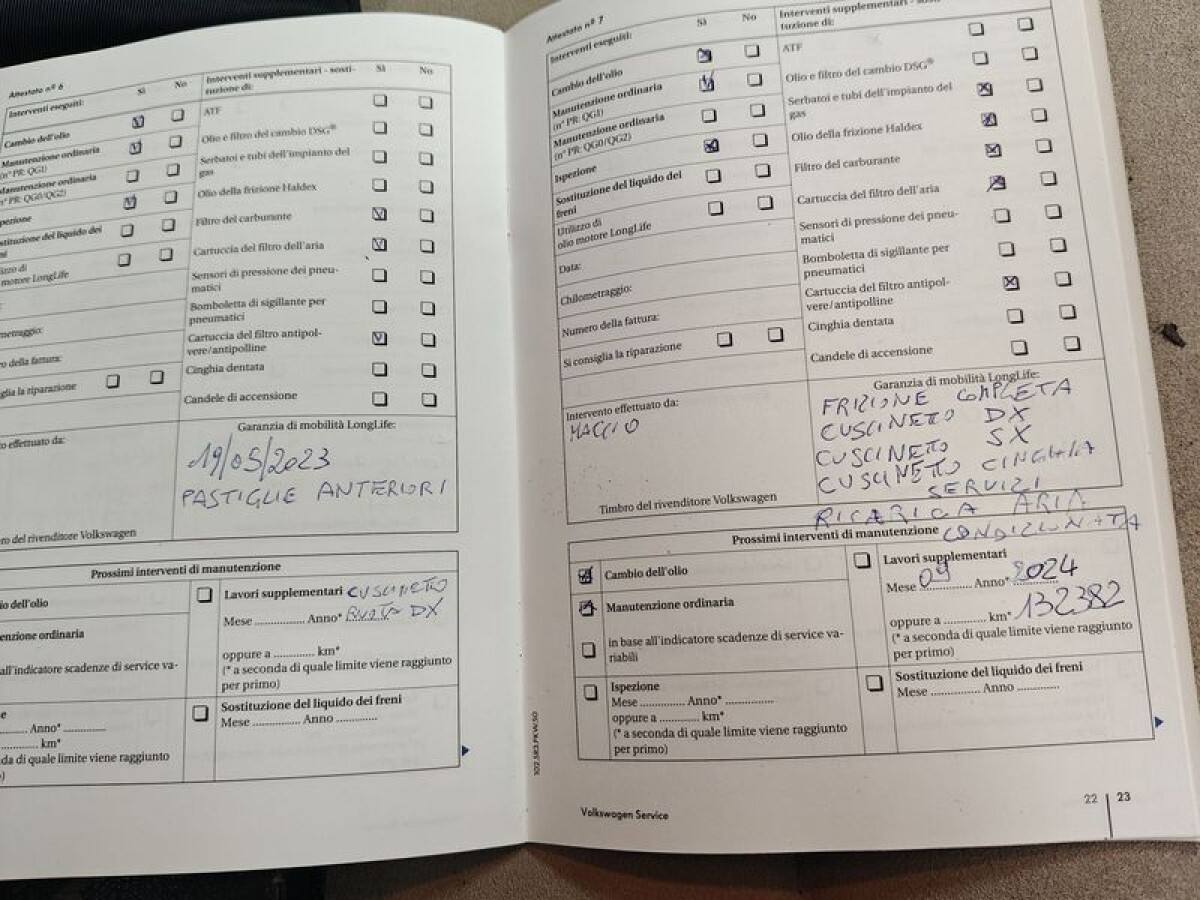 Attestato nº 6
Interventi eseguiti:
Sì
No
Interventi supplementari - sosti-
tuzione di:
Sì
No
Cambio dell'olio
ATF
Manutenzione ordinaria
(nº PR: QG1)
Olio e filtro del cambio DSG®
Manutenzione ordinaria
nº PR: QG0/QG2)
Serbatoi e tubi dell'impianto del
gas
pezione
Olio della frizione Haldex
stituzione del liquido dei
ni
Filtro del carburante
izzo di
motore LongLife
Cartuccia del filtro dell'aria
Sensori di pressione dei pneu-
matici
metraggio:
Bomboletta di sigillante per
pneumatici
ro della fattura:
Cartuccia del filtro antipol-
vere/antipolline
glia la riparazione
Cinghia dentata
Candele di accensione
to effettuato da:
Garanzia di mobilità LongLife:
19/05/2023
PASTIGLIE ANTERIORI
ro del rivenditore Volkswagen
Prossimi interventi di manutenzione
io dell'olio
Lavori supplementari CUSCINETO
Mese .............. Anno* RUOTA DX
enzione ordinaria
oppure a ............ km*
all'indicatore scadenze di service va-
(* a seconda di quale limite viene raggiunto
per primo)
e
Sostituzione del liquido dei freni
Anno*
Mese .............. Anno .............
km*
da di quale limite viene raggiunto
o)
Attestato nº 7
Interventi eseguiti:
Sì
No
Interventi supplementari - sosti-
tuzione di:
Cambio dell'olio
ATF
Manutenzione ordinaria
(nº PR: QG1)
Olio e filtro del cambio DSG®
Manutenzione ordinaria
(nº PR: QG0/QG2)
Serbatoi e tubi dell'impianto del
gas
Ispezione
Olio della frizione Haldex
Sostituzione del liquido dei
freni
Filtro del carburante
Utilizzo di
olio motore LongLife
Cartuccia del filtro dell'aria
Data:
Sensori di pressione dei pneu-
matici
Chilometraggio:
Bomboletta di sigillante per
pneumatici
Numero della fattura:
Cartuccia del filtro antipol-
vere/antipolline
Si consiglia la riparazione
Cinghia dentata
Candele di accensione
Intervento effettuato da:
MACCIO
Garanzia di mobilità LongLife:
FRIZIONE COMPLETA
CUSCINETO DX
CUSCINETO SX
CUSCINETO CINGHIA
SERVIZI
Timbro del rivenditore Volkswagen
RICARICA ARIA
CONDIZIONATA
Prossimi interventi di manutenzione
Cambio dell'olio
Lavori supplementari
Mese 09 Anno* 2024
Manutenzione ordinaria
oppure a ............ km* 132382
in base all'indicatore scadenze di service va-
riabili
(* a seconda di quale limite viene raggiunto
per primo)
Ispezione
Mese .............. Anno* ..............
oppure a ............ km*
(* a seconda di quale limite viene raggiunto
per primo)
Sostituzione del liquido dei freni
Mese .............. Anno .............
102.5R3.PKW.50
Volkswagen Service
22 | 23